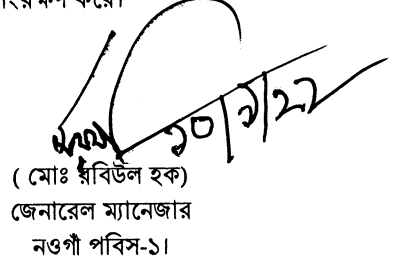 করে।
১০/১/২২
( মোঃ রবিউল হক)
জেনারেল ম্যানেজার
নওগাঁ পবিস-১।